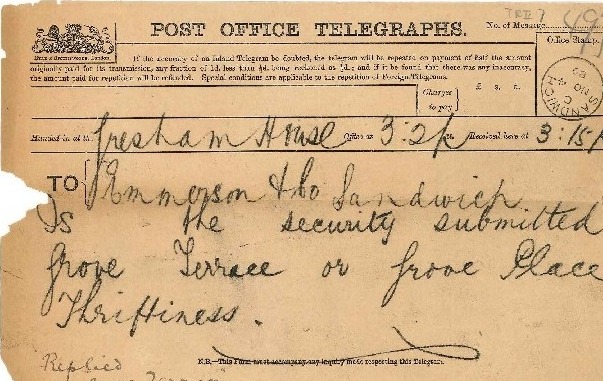 TRE 7 49
POST OFFICE TELEGRAPHS.
No. of Message
Office Stamp.
If the accuracy of an Inland Telegram be doubted, the telegram will be repeated on payment of half the amount
originally paid for its transmission, any fraction of 1d. less than ½d. being reckoned as ½d.; and if it be found that there was any inaccuracy,
the amount paid for repetition will be refunded. Special conditions are applicable to the repetition of Foreign Telegrams.
Charges to pay
£ s. d.
SANDWICH
C
NO
Handed in at the Gresham House Office at 3:2 p Received here at 3:15 p
TO Emmerson & Co Sandwich
Is the security submitted
Grove Terrace or Grove Place
Thriftiness.
N.B.—This Form must accompany any inquiry made respecting this Telegram.
Replied